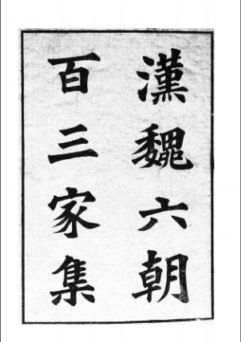 漢魏六朝
百三家集